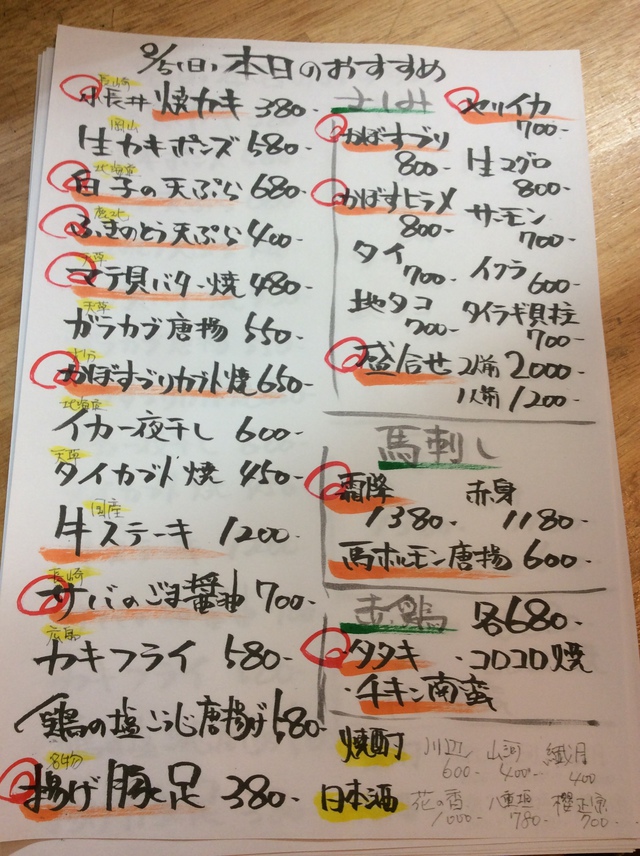 2/5(日) 本日のおすすめ
長崎
小長井 焼カキ 380-
岡山
生カキポンズ 580-
北海道
白子の天ぷら 680-
ふきのとう天ぷら 400-
天草
マテ貝バター焼 480-
天草
ガラカブ唐揚 550-
大分
かぼすブリカブト焼 650-
北海道
イカ一夜干し 600-
天草
タイカブト焼 450-
国産
牛ステーキ 1200-
長崎
サバのごま醤油 700-
広島
カキフライ 580-
鶏の塩こうじ唐揚げ 580-
名物
揚げ豚足 380-
さしみ
セリイカ
700-
かぼすブリ
800-
生マグロ
800-
かぼすヒラメ
800-
サーモン
700-
タイ
700-
イクラ
600-
地タコ
700-
タイラギ貝柱
700-
盛合せ 2人前 2000-
1人前 1200-
馬刺し
霜降
1380-
赤身
1180-
馬ホルモン唐揚 600-
赤鶏 各680-
・タタキ ・コロコロ焼
・チキン南蛮
焼酎
川辺
600-
山河
400-
繊月
400
日本酒
花の香
1000-
八重垣
780-
櫻正宗
700-